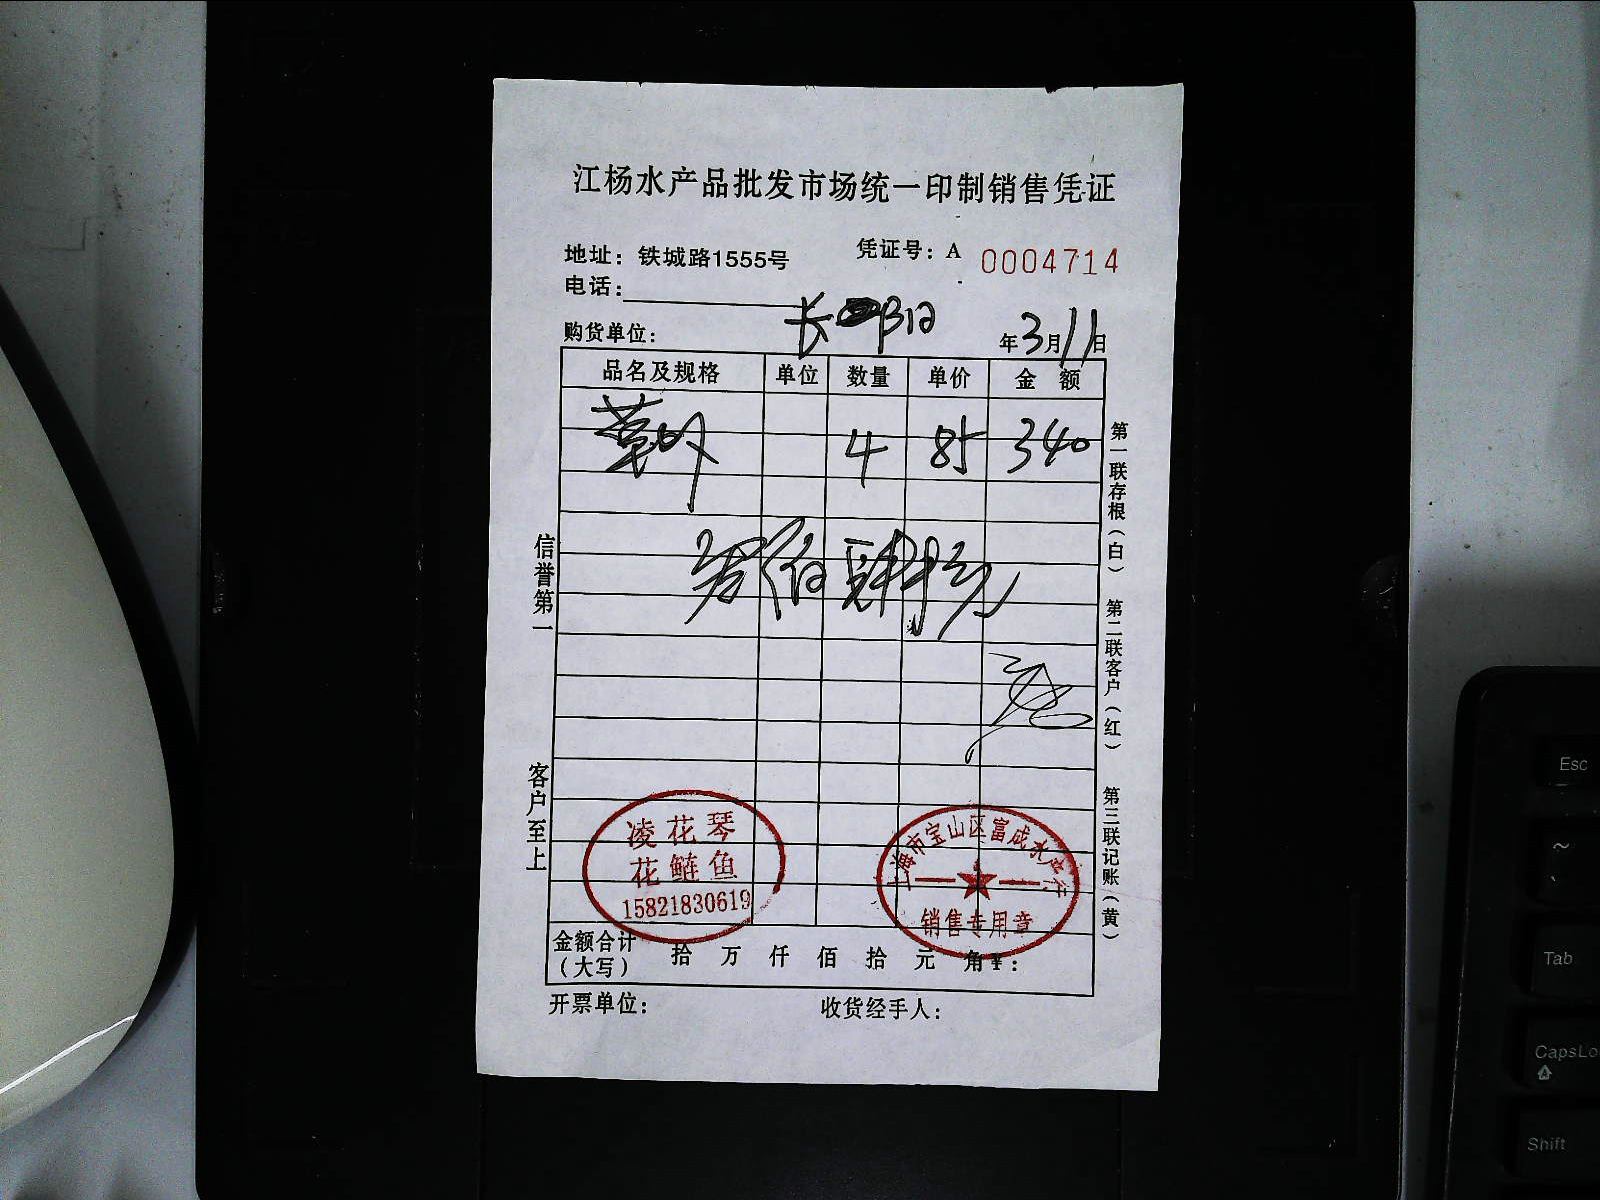 江杨水产品批发市场统一印制销售凭证
地址：铁城路1555号
凭证号：A 0004714
电话：
购货单位：
长
年3月11日
品名及规格 单位 数量 单价 金额
草 4 85 340
叁佰肆拾元
信誉第一
客户至上
第一联存根（白） 第二联客户（红） 第三联记账（黄）
凌花琴
花鲢鱼
15821830619
上海市宝山区富成水产行
销售专用章
金额合计（大写） 拾 万 仟 佰 拾 元 角 ¥：
开票单位： 收货经手人：
Esc
~
Tab
CapsLo
Shift